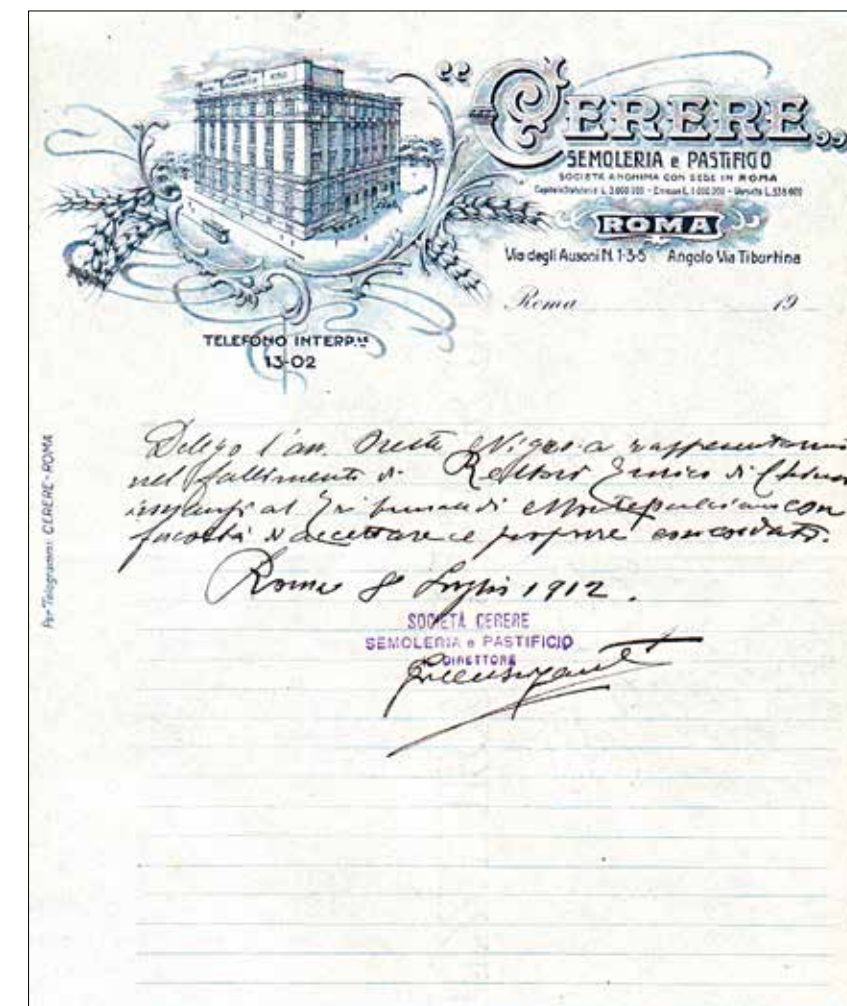 „CERERE„
SEMOLERIA e PASTIFICIO
SOCIETÀ ANONIMA CON SEDE IN ROMA
ROMA
Via degli Ausoni N. 1-3-5 Angolo Via Tiburtina
Roma 19
TELEFONO INTERP.le
13-02
Per Telegrammi: CERERE-ROMA
Delego l'avv. Oreste a rappresentarmi
nel fallimento di Enrico di
al Tribunale di Montepulciano con
facoltà d'accettare e proporre concordato.
Roma 8 Luglio 1912.
SOCIETÀ CERERE
SEMOLERIA e PASTIFICIO
DIRETTORE